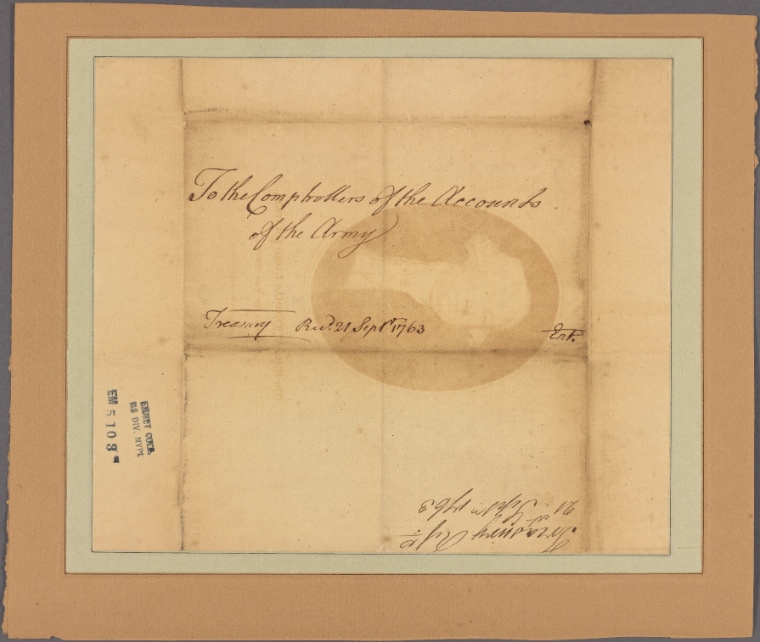 To the Comptrollers of the Accounts
of the Army
Treasury Recd. 21 Septr. 1763
Ent.
Treasury
21st Septr. 1763
EMMET COLL.
MS DIV. NYPL
EM 5108